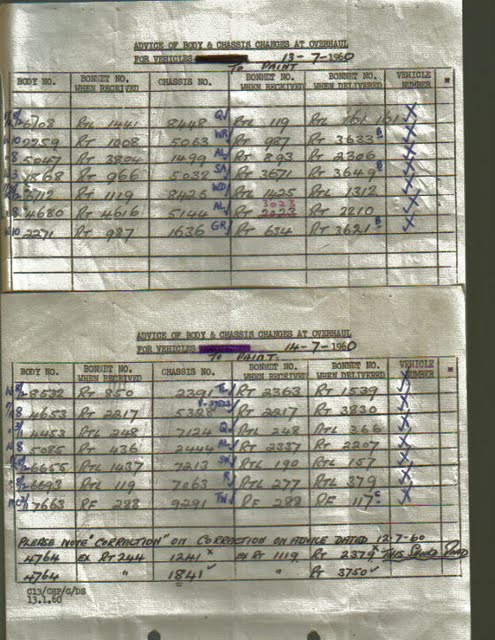 ADVICE OF BODY & CHASSIS CHANGES AT OVERHAUL
FOR VEHICLES 13-7-1960
TO PAINT
BODY NO. BONNET NO. WHEN RECEIVED CHASSIS NO. BONNET NO. WHEN RECEIVED BONNET NO. WHEN DELIVERED VEHICLE NUMBER
RTL 1441 8448 Q RTL 119
2259 RT 1008 5063 WR RT 987 RT 3633 B
5047 RT 3804 1499 AL RT 893 RT 2306
1568 RT 966 5038 SA RT 3671 RT 3649 B
RT 1119 8426 WD RTL 1425 RTL 1312
4680 RT 4616 5144 AL RT 2023 RT 2210
2271 RT 987 1636 GR RT 634 RT 3621 B
ADVICE OF BODY & CHASSIS CHANGES AT OVERHAUL
FOR VEHICLES 14-7-1960
TO PAINT
BODY NO. BONNET NO. WHEN RECEIVED CHASSIS NO. BONNET NO. WHEN RECEIVED BONNET NO. WHEN DELIVERED VEHICLE NUMBER
8532 RT 850 RT 2363 RT 1529
4653 RT 2217 5328 RT 2217 RT 3830
4453 RTL 248 7124 RTL 248 RTL 366
5085 RT 436 2444 RT 2337 RT 2207
6655 RTL 1437 7213 RTL 190 RTL 157
6693 RTL 119 7063 RTL 277 RTL 379
7663 RF 288 9291 TN RF 288 RF 117 C
PLEASE NOTE "CORRECTION" ON CORRECTION ON ADVICE DATED 12-7-60
4764 EX RT 244 1241 x EX RT 1119 RT 2379 THIS
4764 " 1841 " RT 3750
C13/CHP/G/DS
13.1.60